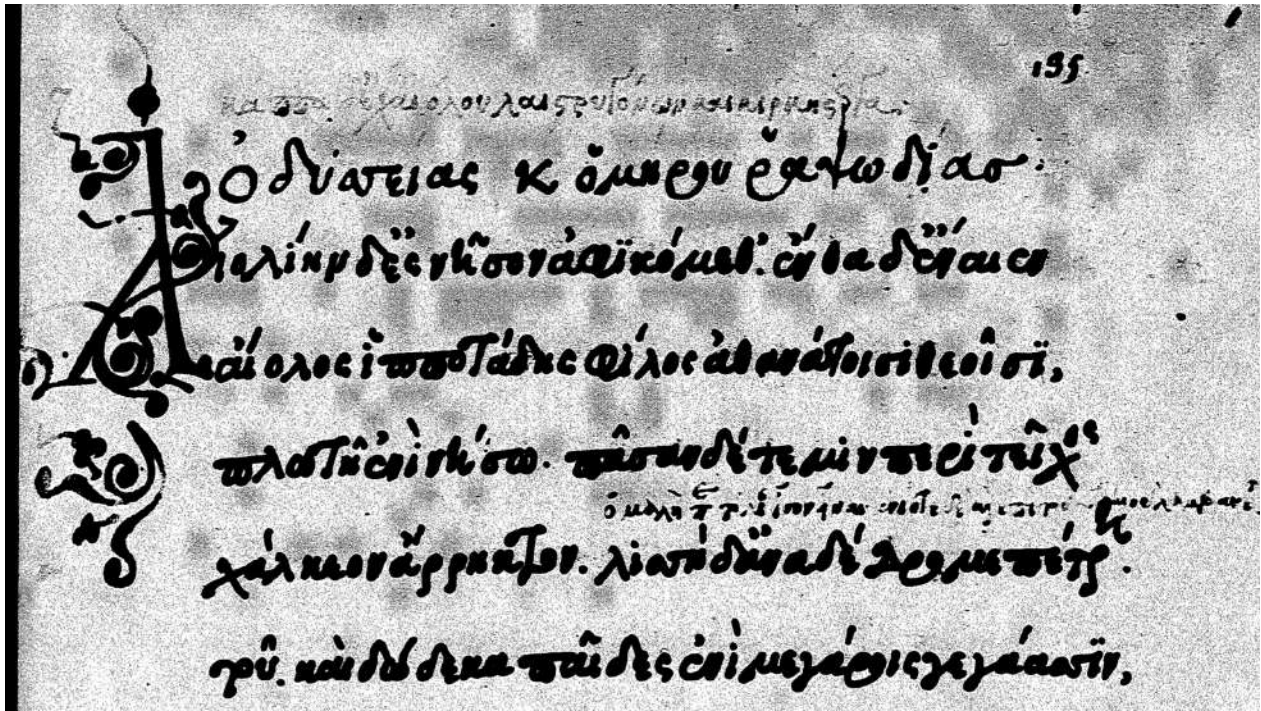 λαιστρυγόνων καὶ κίρκης
ὀδύσσειας κ ὁμήρου ῥαψωδίας·
Αἰολίην δ' ἐς νῆσον ἀφϊκόμεθ'. ἔνθα δ' ἔναιεν
αἴολος ἱπποτάδης φίλος ἀθανάτοισι θεοῖσϊ,
πλωτῆ ἐνὶ νήσω. πᾶσαν δέ τέ μιν περὶ τεῖχος
χάλκεον ἄρρηκτον. λισσὴ δ' ἀναδέδρομε πέτρη.
τοῦ. καὶ δώδεκα παῖδες ἐνὶ μεγάροις γεγάασϊν,